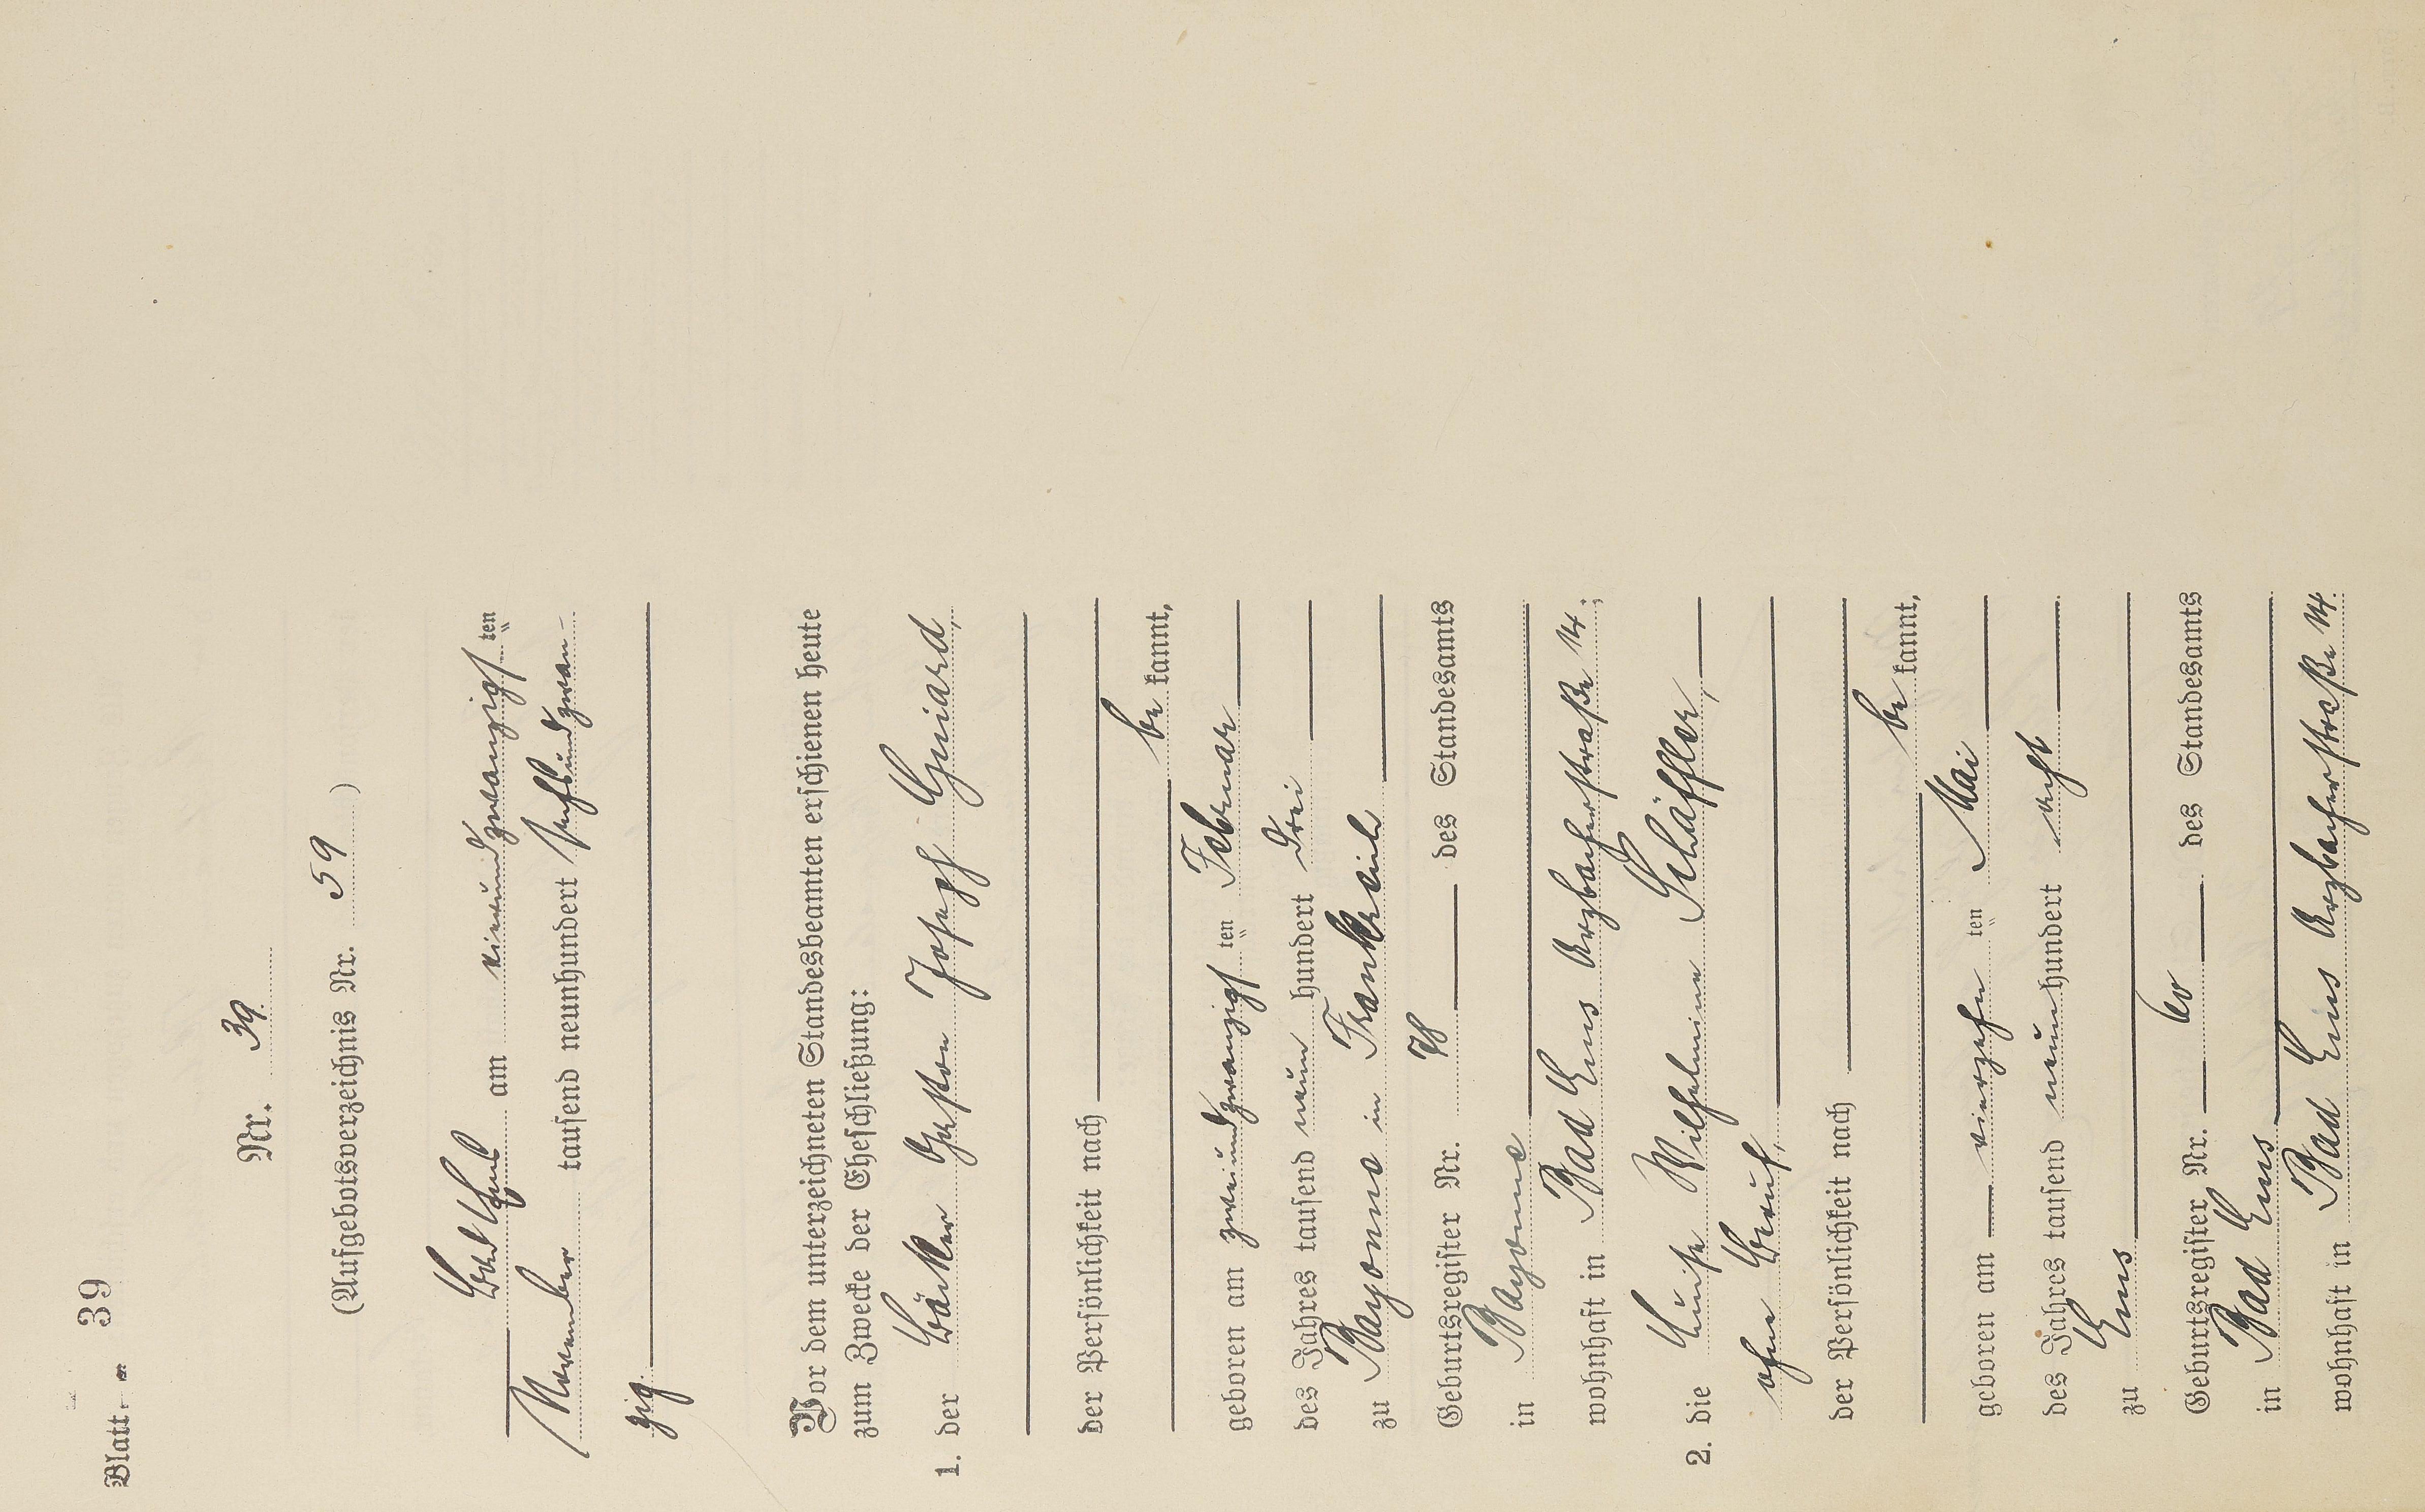 Blatt 39
Nr. 39.
(Aufgebotsverzeichnis Nr. 59)
Bad Ems am vierundzwanzigsten
November tausend neunhundert sechsundzwan-
zig.
Vor dem unterzeichneten Standesbeamten erschienen heute
zum Zwecke der Eheschließung:
1. der Bäcker Gaston Joseph Guiard,
der Persönlichkeit nach
bekannt,
geboren am zweiundzwanzigsten Februar
des Jahres tausend neunhundert drei
zu Bayonne in Frankreich
Geburtsregister Nr. 78 des Standesamts
in Bayonne
wohnhaft in Bad Ems Arzbacherstraße 14;
2. die Luise Wilhelmine Schäffler,
ohne Beruf,
der Persönlichkeit nach
bekannt,
geboren am vierzehnten Mai
des Jahres tausend neunhundert acht
zu Ems
Geburtsregister Nr. 60 des Standesamts
in Bad Ems
wohnhaft in Bad Ems Arzbacherstraße 14.